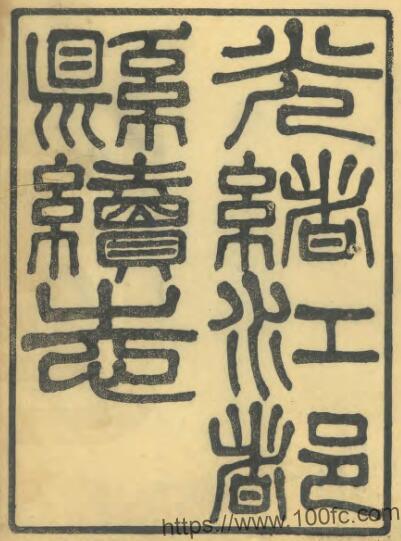 光緒江都
縣續志
https://www.100fc.com